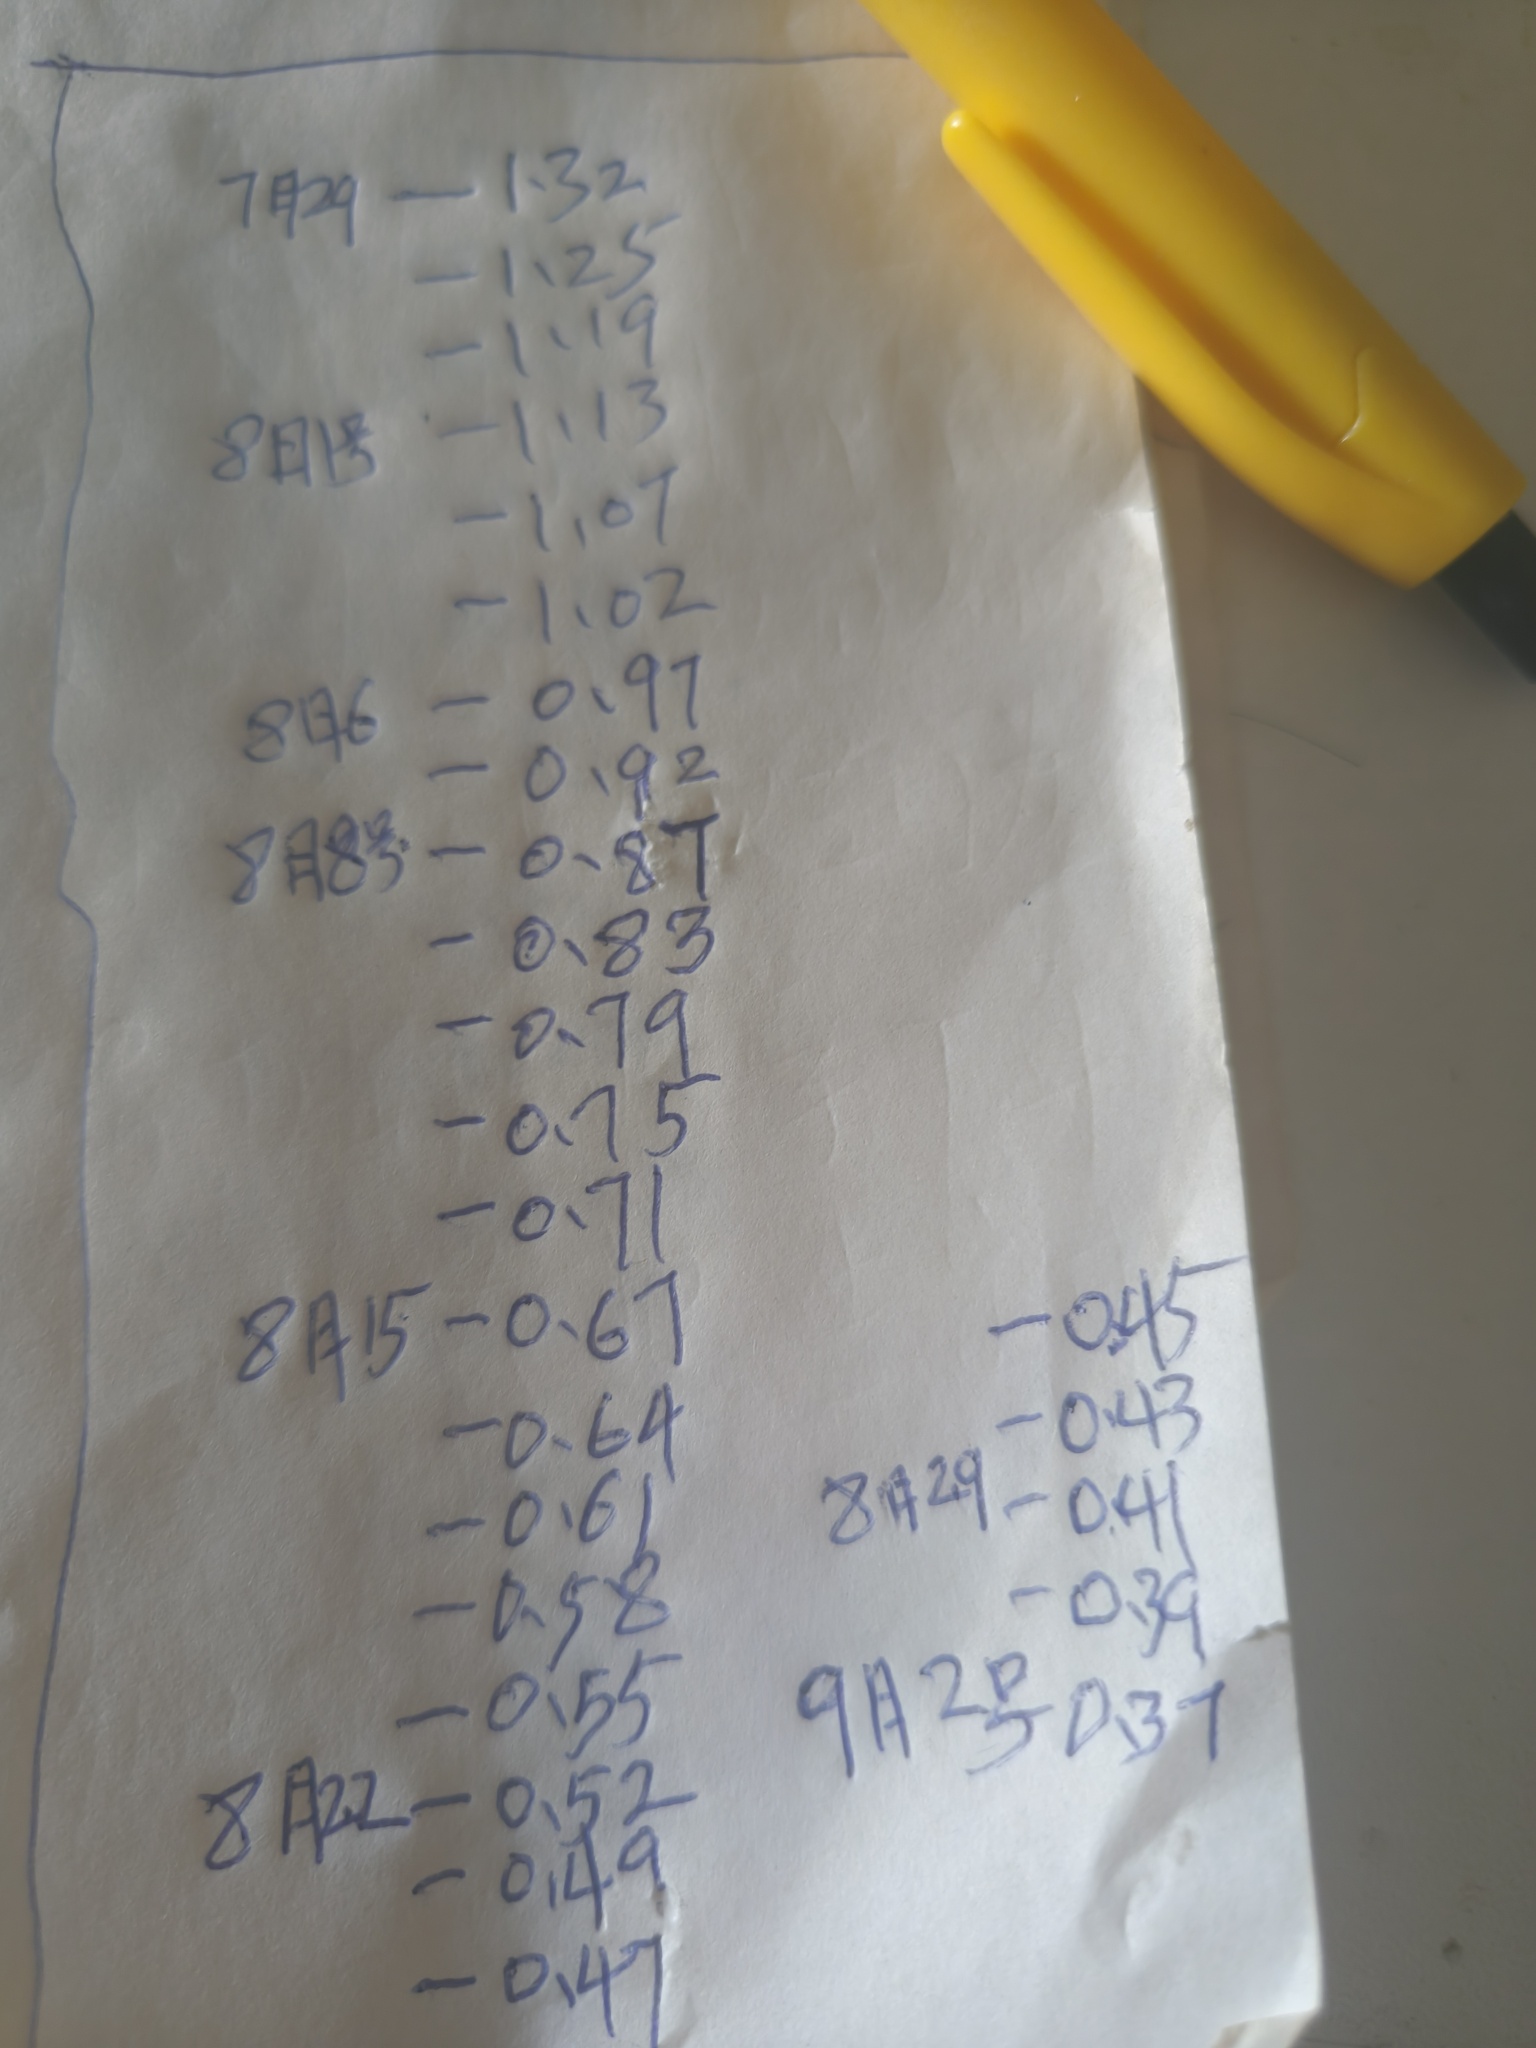 7月29 — 1.32
- 1.25
- 1.19
8月1号 - 1.13
- 1.07
- 1.02
8月6 - 0.97
- 0.92
8月8号 - 0.87
- 0.83
- 0.79
- 0.75
- 0.71
8月15 - 0.67
- 0.64
- 0.61
- 0.58
- 0.55
8月22 - 0.52
- 0.49
- 0.47
- 0.45
- 0.43
8月29 - 0.41
- 0.39
9月2号 0.37